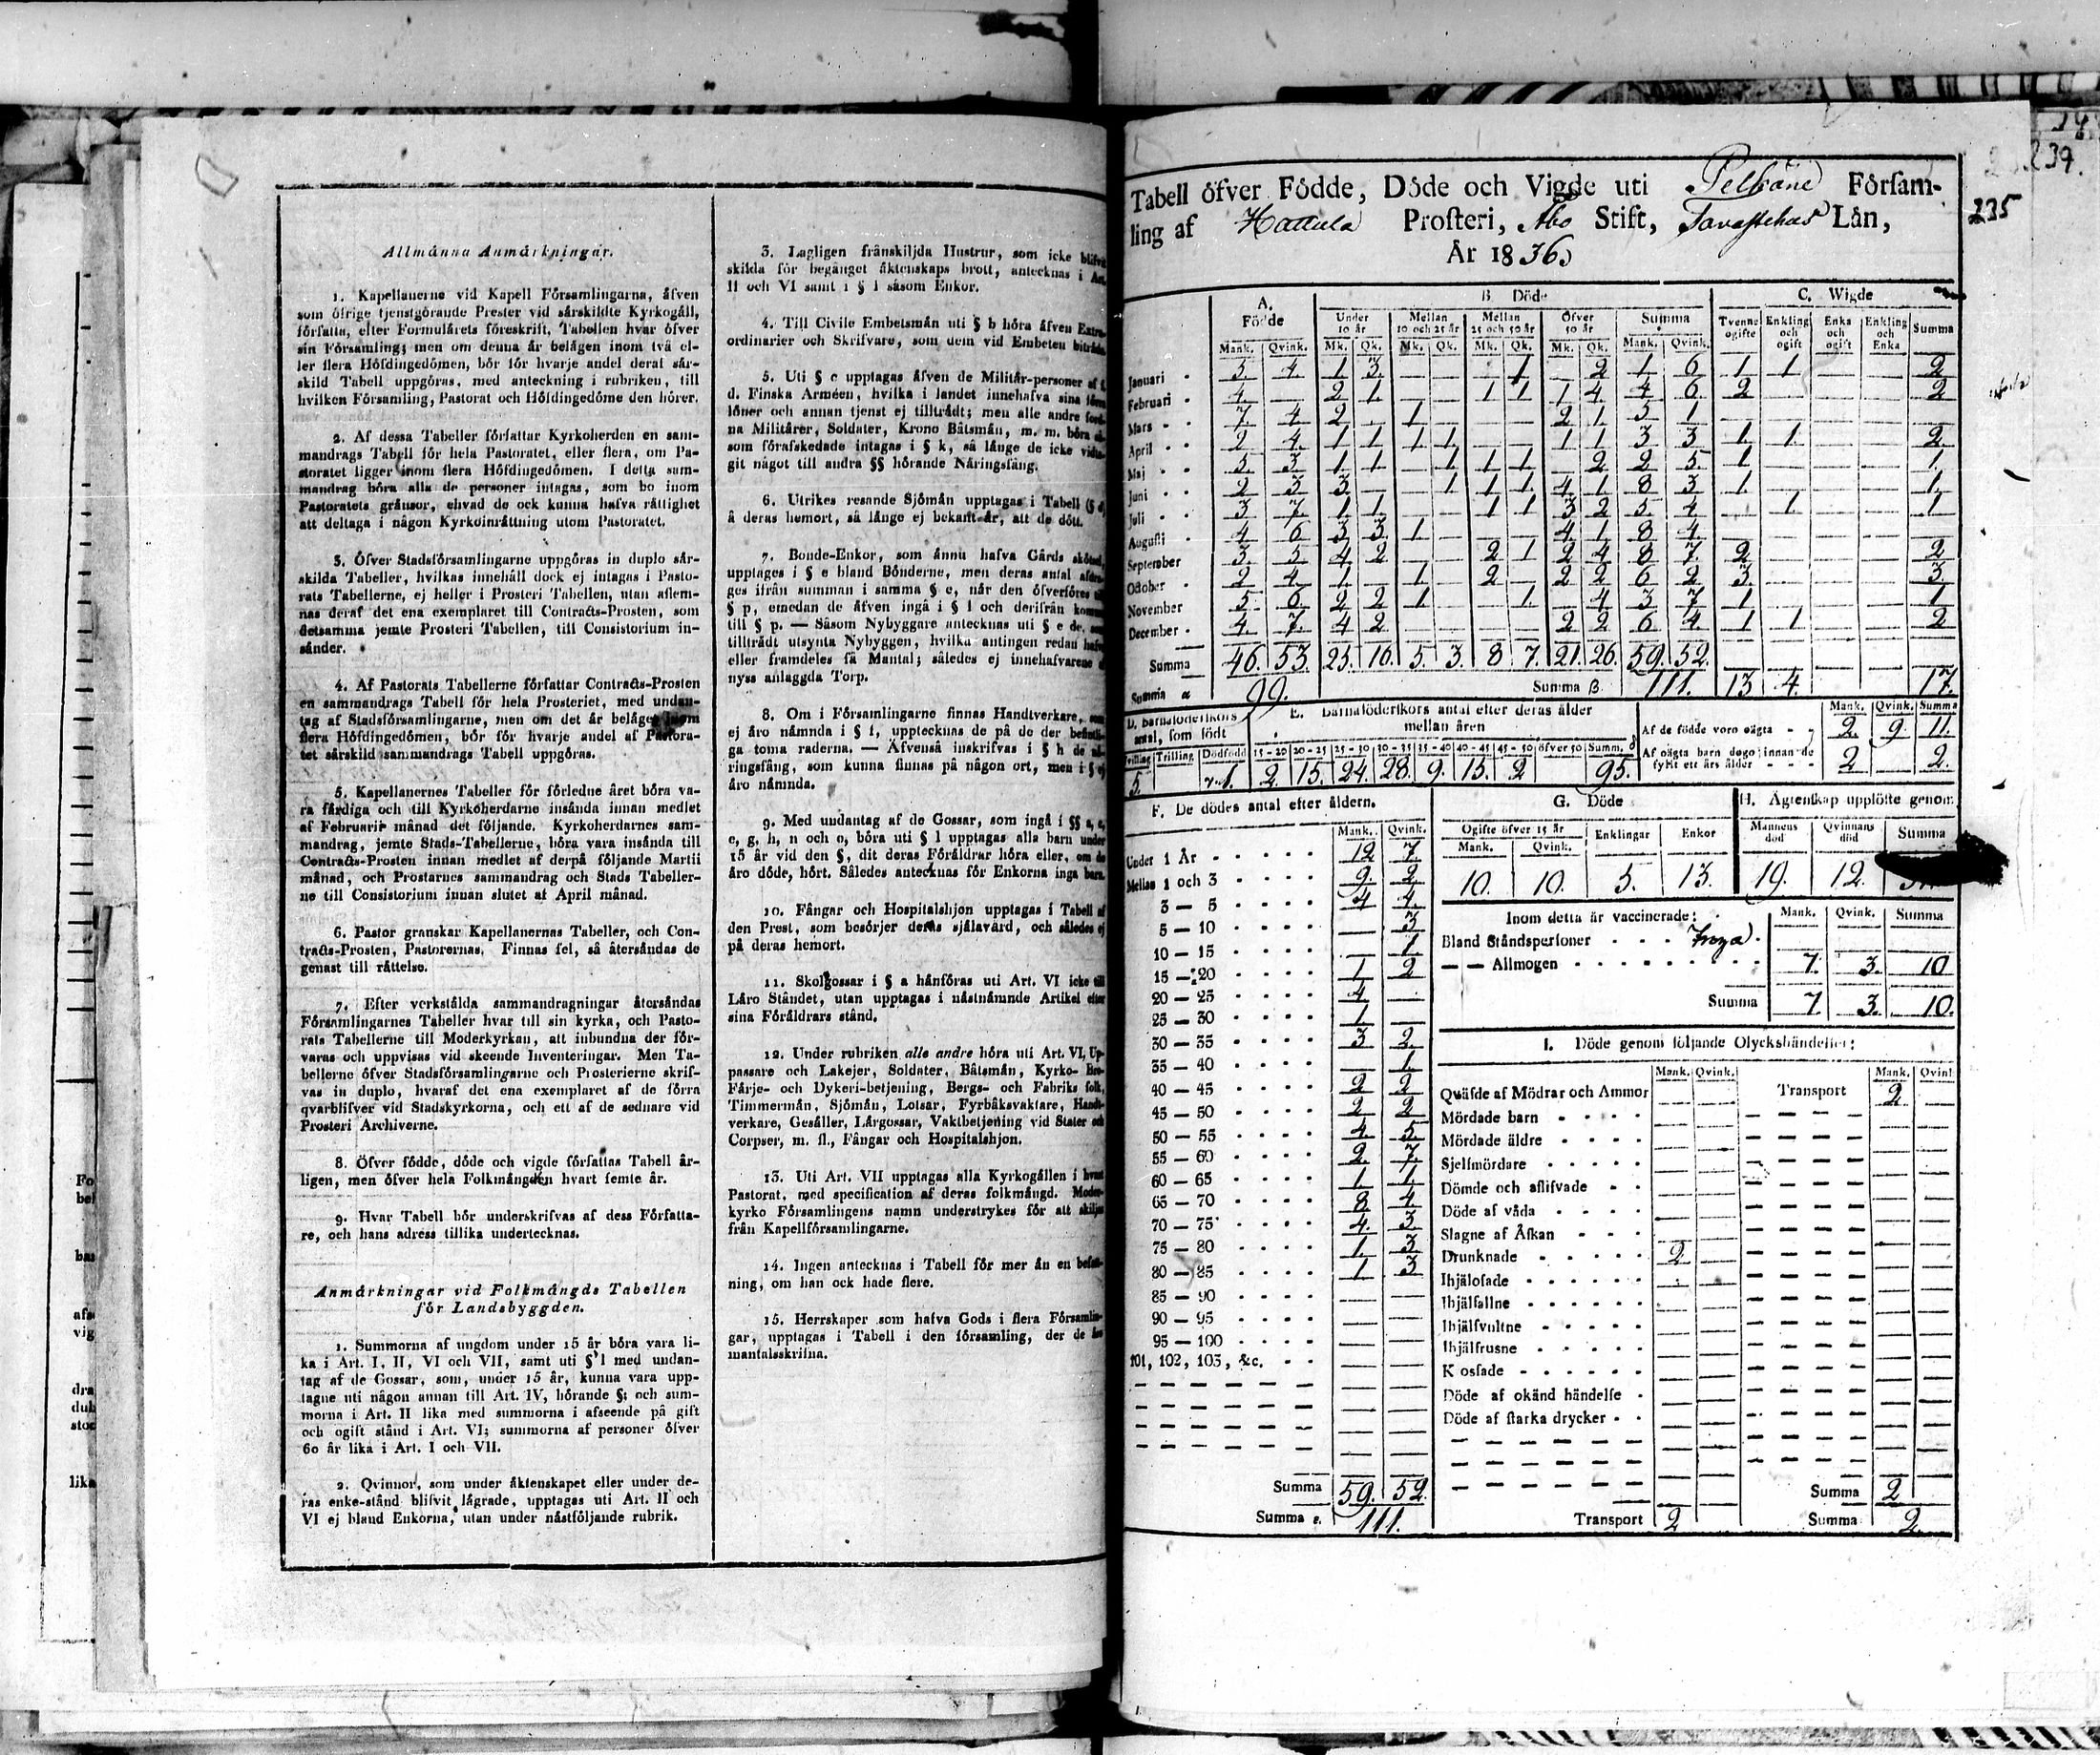 Allmånna Anmårkningar.
1. Kapellanerne vid Kapell Församlingarna, åfven
som öfrige tjenstgörande Prester vid sårskildte Kyrkogåll,
författa, efter Formulårets föreskrift, Tabellen hvar öfver
sin Församling; men om denna år belågen inom två el-
ler flera Höfdingedömen, bör för hvarje andel deraf sår-
skild Tabell uppgöras, med anteckning i rubriken, till
hvilken Församling, Pastorat och Höfdingedöme den hörer.
2. Af dessa Tabeller författar Kyrkoherden en sam-
mandrags Tabell för hela Pastoratet, eller flera, om Pa-
storatet ligger inom flera Höfdingedömen. I detta sam-
mandrag böra alla de personer intagas, som bo inom
Pastoratets grånsor, ehvad de ock kunna hafva råttighet
att deltaga i någon Kyrkoinråttning utom Pastoratet.
3. Öfver Stadsförsamlingarne uppgöras in duplo sår-
skilda Tabeller, hvilkas innehåll dock ej intagas i Pasto-
rats Tabellerne, ej heller i Prosteri Tabellen, utan aflem-
nas deraf det ena exemplaret till Contracts-Prosten, som
detsamma jemte Prosteri Tabellen, till Consistorium in-
sånder.
4. Af Pastorats Tabellerne författar Contracts-Prosten
en sammandrags Tabell för hela Prosteriet, med undan-
tag af Stadsförsamlingarne, men om det år belåget inom
flera Höfdingedömen, bör för hvarje andel af Pastora-
tet sårskild sammandrags Tabell uppgöras.
5. Kapellanernes Tabeller för förledne året böra va-
ra fårdiga och till Kyrkoherdarne insånda innan medlet
af Februarii månad det följande. Kyrkoherdarnes sam-
mandrag, jemte Stads-Tabellerne, böra vara insånda till
Contracts-Prosten innan medlet af derpå följande Martii
månad, och Prostarnes sammandrag och Stads Tabeller-
ne till Consistorium innan slutet af April månad.
6. Pastor granskar Kapellanernas Tabeller, och Con-
tracts-Prosten, Pastorernas. Finnas fel, så återsåndas de
genast till råttelse.
7. Efter verkstålda sammandragningar återsåndas
Församlingarnes Tabeller hvar till sin kyrka, och Pasto-
rats Tabellerne till Moderkyrkan, att inbundna der för-
varas och uppvisas vid skeende Inventeringar. Men Ta-
bellerne öfver Stadsförsamlingarne och Prosterierne skrif-
vas in duplo, hvaraf det ena exemplaret af de förra
qvarblifver vid Stadskyrkorna, och ett af de sednare vid
Prosteri Archiverne.
8. Öfver födde, döde och vigde författas Tabell år-
ligen, men öfver hela Folkmångden hvart femte år.
9. Hvar Tabell bör underskrifvas af dess Författa-
re, och hans adress tillika undertecknas.
Anmårkningar vid Folkmångds Tabellen
för Landsbyggden.
1. Summorna af ungdom under 15 år böra vara li-
ka i Art. I, II, VI och VII, samt uti § l med undan-
tag af de Gossar, som, under 15 år, kunna vara upp-
tagne uti någon annan till Art. IV, hörande §; och sum-
morna i Art. II lika med summorna i afseende på gift
och ogift stånd i Art. VI; summorna af personer öfver
60 år lika i Art. I och VII.
2. Qvinnor, som under åktenskapet eller under de-
ras enke-stånd blifvit lågrade, upptagas uti Art. II och
VI ej bland Enkorna, utan under nåstföljande rubrik.
3. Lagligen frånskiljda Hustrur, som icke blifvit
skilda för begånget åktenskaps brott, antecknas i Art.
II och VI samt i § l såsom Enkor.
4. Till Civile Embetsmån uti § b höra åfven Extra
ordinarier och Skrifvare, som dem vid Embeten bitråda.
5. Uti § c upptagas åfven de Militår-personer af f.
d. Finska Arméen, hvilka i landet innehafva sina förra
löner och annan tjenst ej tilltrådt; men alle andre ford-
na Militårer, Soldater, Krono Båtsmån, m. m. böra
som förafskedade intagas i § k, så långe de icke vidta-
git något till andra §§ hörande Nåringsfång.
6. Utrikes resande Sjömån upptagas i Tabell
å deras hemort, så långe ej bekant år, att de dött.
7. Bonde-Enkor, som ånnu hafva Gårds skötsel,
upptages i § e bland Bönderne, men deras antal afdra-
ges ifrån summan i samma § e, når den öfverföres till
§ p, emedan de åfven ingå i § l och derifrån komma
till § p. — Såsom Nybyggare antecknas uti § e de, som
tilltrådt utsynta Nybyggen, hvilka antingen redan hafva
eller framdeles få Mantal; således ej innehafvarene af
nyss anlaggda Torp.
8. Om i Församlingarne finnas Handtverkare, som
ej åro nåmnda i § f, upptecknas de på de der befintli-
ga toma raderna. — Åfvenså inskrifvas i § h de nå-
ringsfång, som kunna finnas på någon ort, men i § ej
åro nåmnda.
9. Med undantag af de Gossar, som ingå i §§ a, c,
e, g, h, n och o, böra uti § l upptagas alla barn under
15 år vid den §, dit deras Föråldrar höra eller, om de
åro döde, hört. Således antecknas för Enkorna inga barn.
10. Fångar och Hospitalshjon upptagas i Tabell af
den Prest, som besörjer deras sjålavård, och således ej
på deras hemort.
11. Skolgossar i § a hånföras uti Art. VI icke till
Låro Ståndet, utan upptagas i nåstnåmnde Artikel efter
sina Föråldrars stånd.
12. Under rubriken alle andre höra uti Art. VI, Up-
passare och Lakejer, Soldater, Båtsmån, Kyrko- Bro-
Fårje- och Dykeri-betjening, Bergs- och Fabriks folk,
Timmermån, Sjömån, Lotsar, Fyrbåksvaktare, Handt-
verkare, Gesåller, Lårgossar, Vaktbetjening vid Stater och
Corpser, m. fl., Fångar och Hospitalshjon.
13. Uti Art. VII upptagas alla Kyrkogållen i hvart
Pastorat, med specification af deras folkmångd. Moder-
kyrko Församlingens namn understrykes för att skiljas
från Kapellförsamlingarne.
14. Ingen antecknas i Tabell för mer ån en befatt-
ning, om han ock hade flere.
15. Herrskaper som hafva Gods i flera Församlin-
gar, upptagas i Tabell i den församling, der de åro
mantalsskrifna.
239.
235
Tabell öfver Födde, Döde och Vigde uti Pelkäne Församl-
ling af Hattula Prosteri, Åbo Stift, Tavastehus Län,
År 1836
A. Födde B. Döde C. Wigde
Under 10 år Mellan 10 och 25 år Mellan 25 och 50 år Öfver 50 år Summa Tvenne ogifte Enkling och ogift Enka och ogift Enkling och Enka Summa
Mank. Qvink. Mk. Qk. Mk. Qk. Mk. Qk. Mk. Qk. Mank. Qvink.
Januari 5 4 1 3 1 2 1 6 1 1 2
Februari 4 2 1 1 1 1 4 4 6 2 2
Mars 7 4 2 1 2 1 5 1
April 2 4 1 1 1 1 1 1 3 3 1 1 2
Maj 5 3 1 1 1 1 1 2 2 5 1 1
Juni 2 3 3 1 1 1 4 1 8 3 1 1
Juli 3 7 1 1 1 1 3 2 5 4 1 1
Augusti 4 6 3 3 1 4 1 8 4
September 3 5 4 2 2 1 2 4 8 7 2 2
October 2 4 1 1 2 2 2 6 2 3 3
November 5 6 2 2 1 1 4 3 7 1 1
December 4 7 4 2 2 2 6 4 1 1 2
Summa 46. 53. 25. 16. 5. 3. 8 7. 21. 26. 59. 52.
Summa α 99. Summa β 111. 13 4. 17.
D. Barnaföderskors antal, som födt
Tvilling Trilling Dödfödd
5. 1.
E. Barnaföderskors antal efter deras ålder mellan åren
15-20 20-25 25-30 30-35 35-40 40-45 45-50 öfver 50 Summ.
2. 15. 24. 28. 9. 15. 2 95.
Mank. Qvink. Summa
Af de födde voro oägta 2. 9. 11.
Af oägta barn dogo innan de fyllt ett års ålder 2 2.
F. De dödes antal efter åldern.
Mank. Qvink.
Under 1 År 12 7
Mellan 1 och 3 9. 2
3 — 5 4 4
5 — 10 3
10 — 15 1
15 — 20 1 2
20 — 25 4
25 — 30 1
30 — 35 3 2
35 — 40 1
40 — 45 2 2
45 — 50 2 2
50 — 55 4. 5
55 — 60 2. 7
60 — 65 1 1
65 — 70 8 4
70 — 75 4. 3
75 — 80 1. 3
80 — 85 1 3
85 — 90
90 — 95
95 — 100
101, 102, 103, &c.
Summa 59. 52
Summa ε. 111.
G. Döde
Ogifte öfver 15 år Enklingar Enkor
Mank. Qvink.
10. 10. 5. 13.
H. Ägtenskap upplöste genom
Mannens död Qvinnans död Summa
19. 12.
Inom detta år vaccinerade: Mank. Qvink. Summa
Bland Ståndspersoner Inga
— — Allmogen 7. 3. 10
Summa 7. 3. 10.
I. Döde genom följande Olyckshändelser:
Mank. Qvink. Mank. Qvink
Quäfde af Mödrar och Ammor Transport 2
Mördade barn
Mördade äldre
Sjelfmördare
Dömde och aflifvade
Döde af våda
Slagne af Åskan
Drunknade 2
Ihjälosade
Ihjälfallne
Ihjälsvultne
Ihjälfrusne
K osfade
Döde af okänd händelse
Döde af starka drycker
Summa 2
Transport 2 Summa 2.